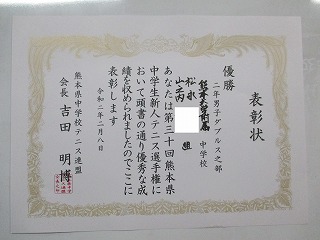 表彰状
優勝
二年男子ダブルス之部
熊本大附属中学校
松永
山之内
組
あなたは第三十回熊本県
中学生新人テニス選手権に
おいて頭書の通り優秀な成
績を収められましたのでここに
表彰します
令和二年二月八日
熊本県中学校テニス連盟
会長 吉田 明博